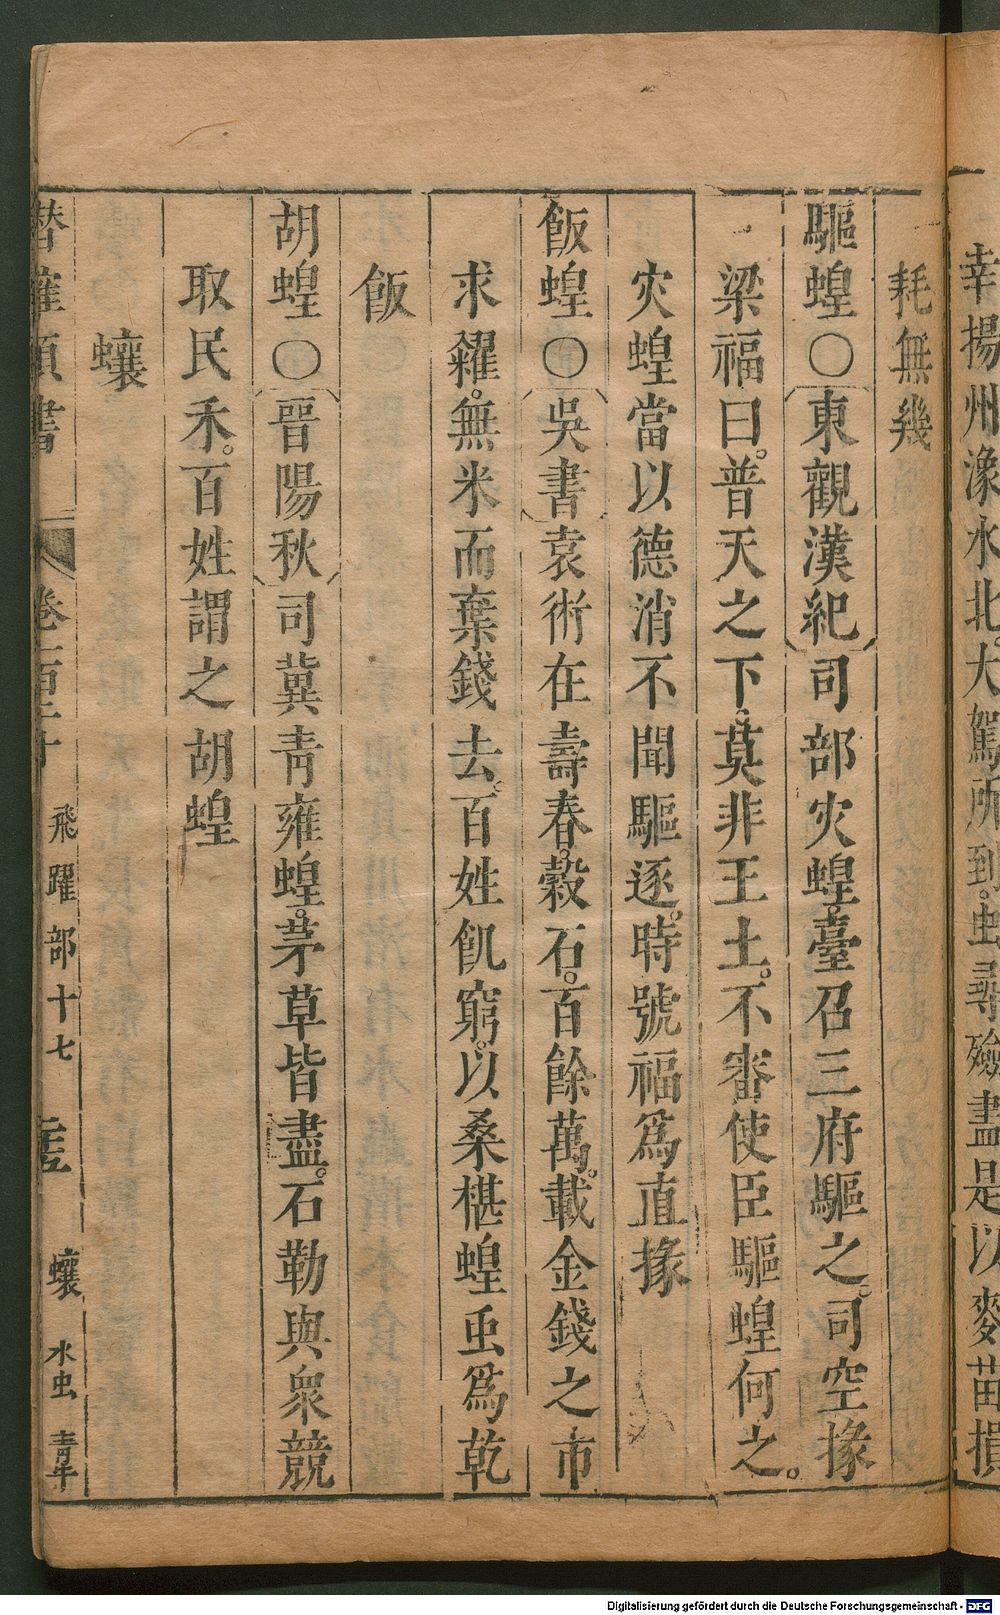 幸揚州湪水北大駕所到。虫尋殮盡是以麥苗損
耗無幾
驅蝗○〔東觀漢紀〕司部灾蝗。臺召三府驅之。司空掾
梁福曰。普天之下。莫非王土。不審使臣驅蝗何之。
灾蝗當以德消不聞驅逐。時號福爲直掾
飯蝗○〔吳書〕袁術在壽春。穀石。百餘萬。載金錢之市
求糴。無米而棄錢去。百姓飢窮。以桑椹蝗虫爲乾
飯
胡蝗○〔晉陽秋〕司冀青雍蝗。茅草皆盡。石勒與衆競
取民禾。百姓謂之胡蝗
蠰
潛確類書 卷一百二十 飛躍部十七 蠰 水虫 青蚨
Digitalisierung gefördert durch die Deutsche Forschungsgemeinschaft - DFG